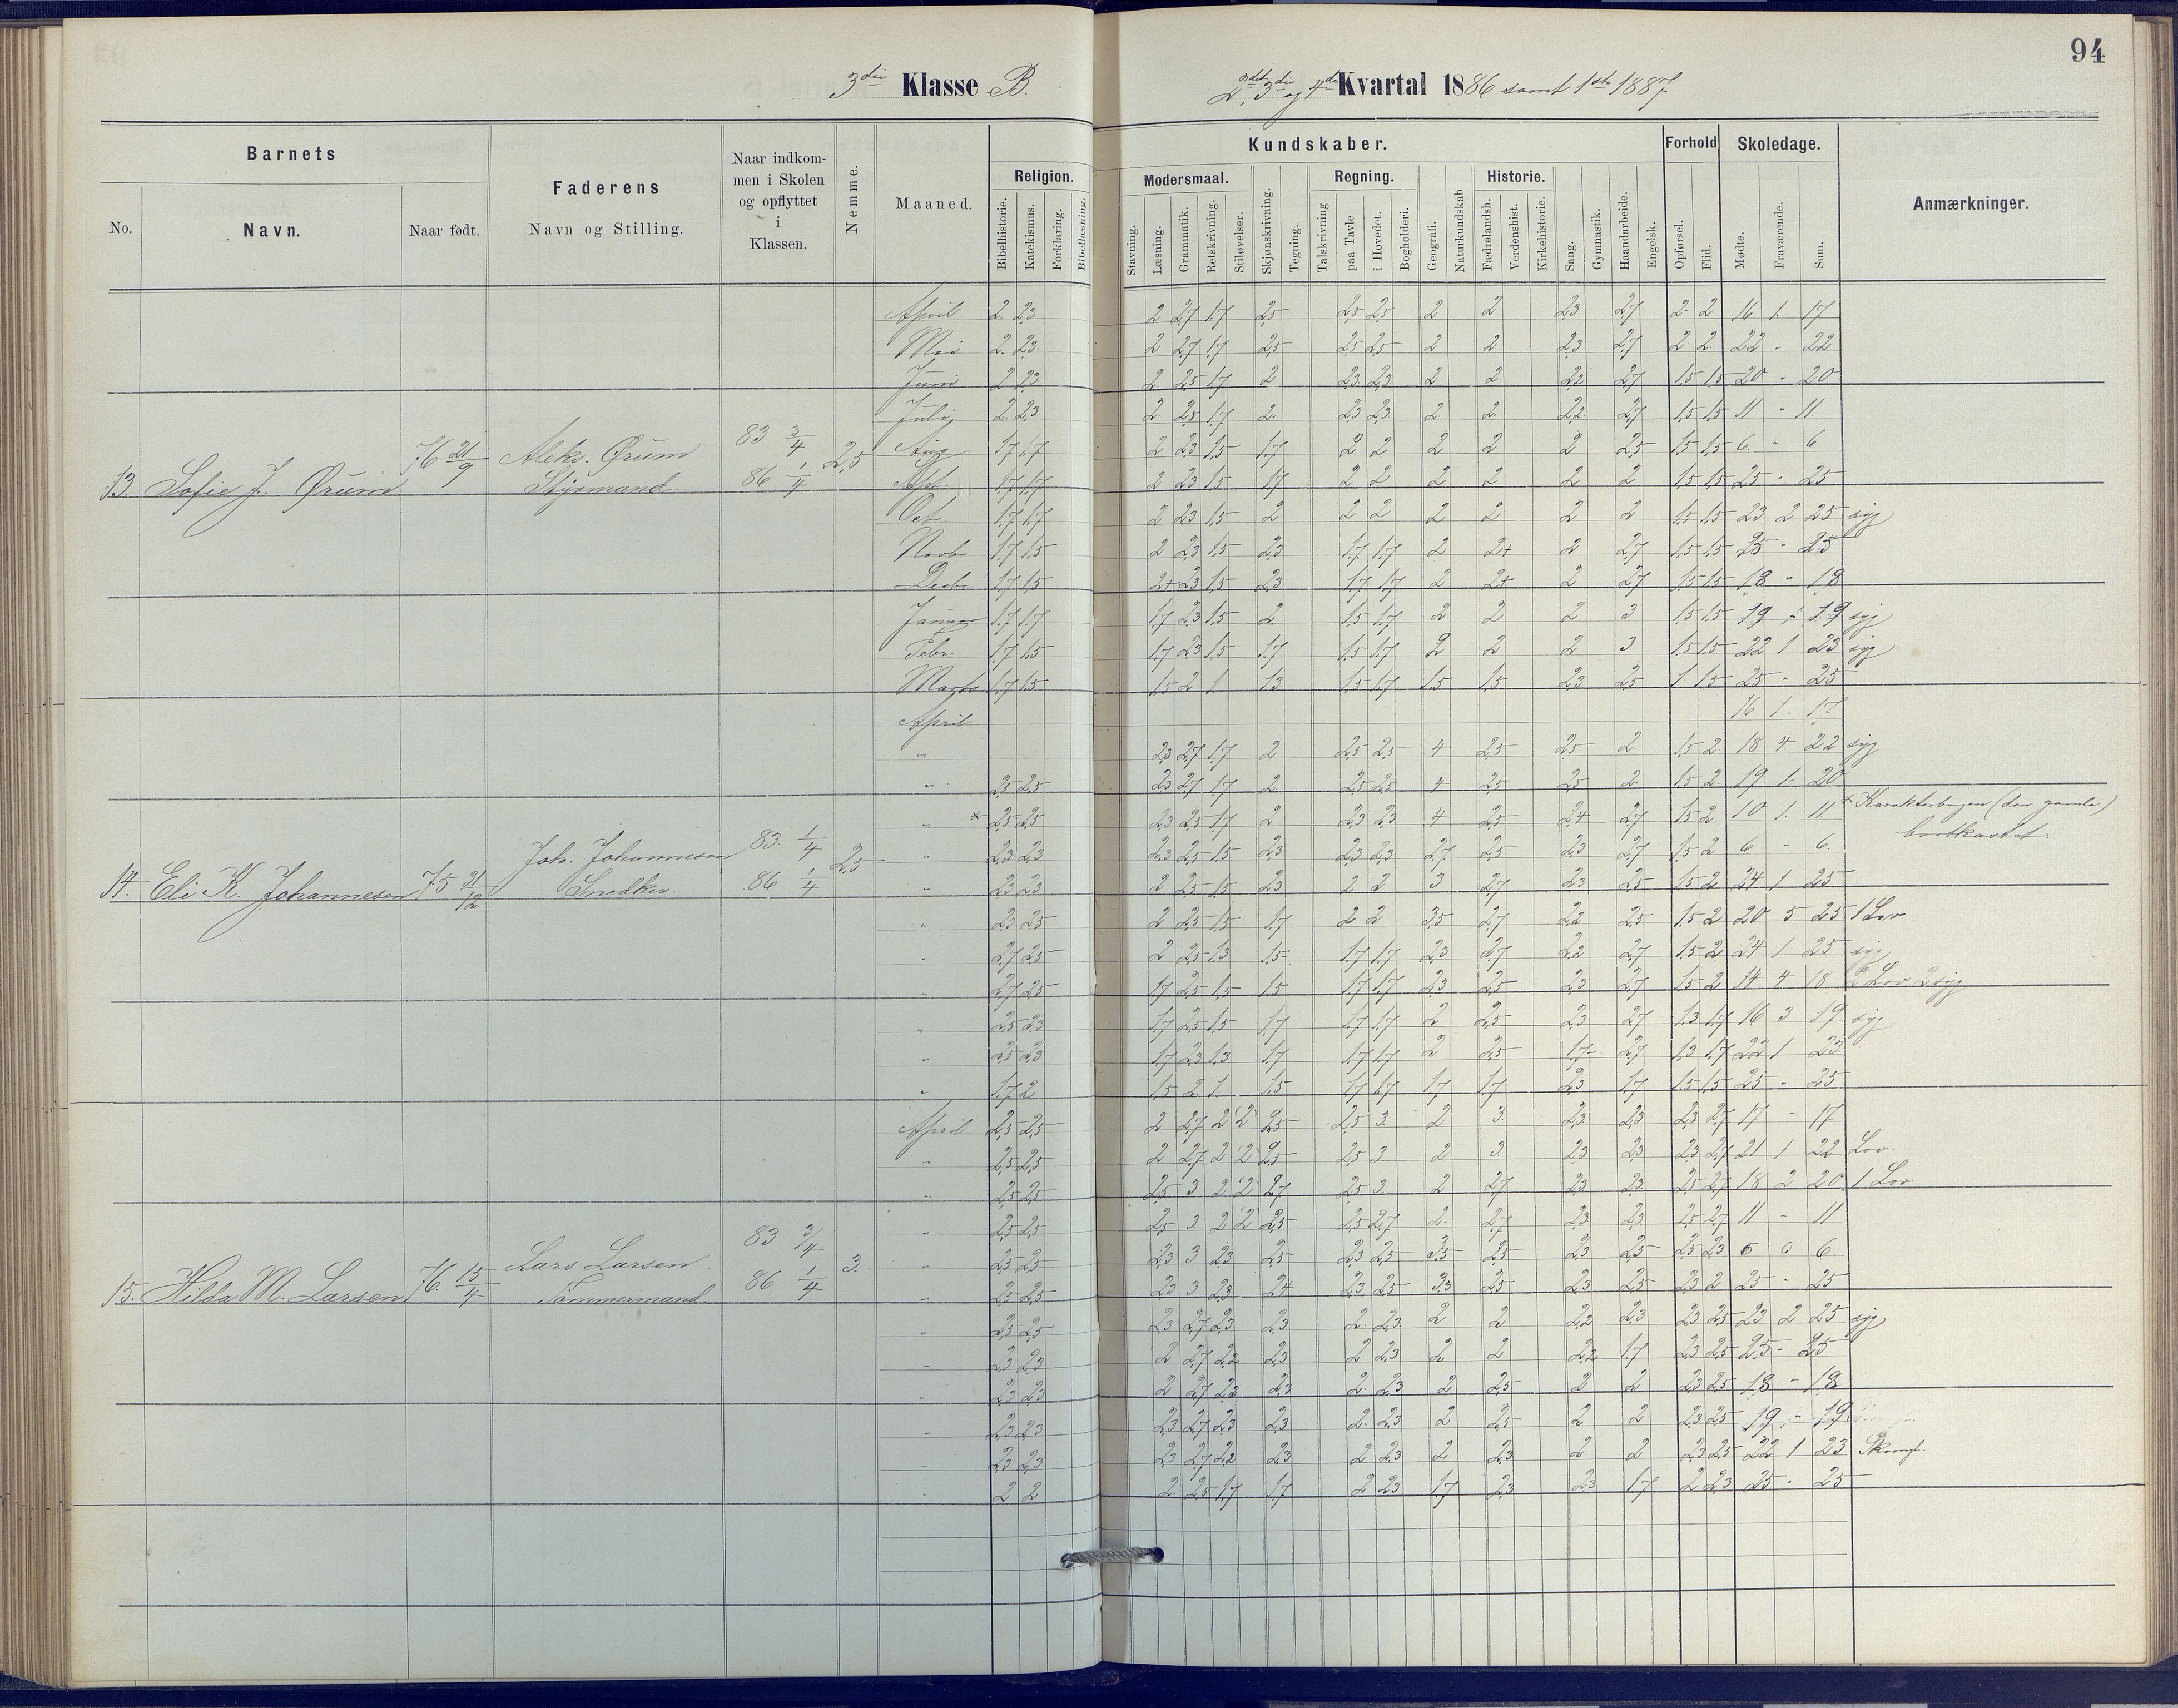 94
3die Klasse B.
2det, 3die og 4de Kvartal 1886 samt 1ste 1887
Barnets
No.
Navn.
Naar født.
Faderens
Navn og Stilling.
Naar indkom-
men i Skolen
og opflyttet
i
Klassen.
Nemme.
Maaned.
Religion.
Bibelhistorie.
Katekismus.
Forklaring.
Bibellæsning.
Kundskaber.
Modersmaal.
Stavning.
Læsning.
Grammatik.
Retskrivning.
Stiløvelser.
Skjønskrivning.
Tegning.
Regning.
Talskrivning
paa Tavle
i Hovedet.
Bogholderi.
Geografi.
Naturkundskab
Historie.
Fædrelandsh.
Verdenshist.
Kirkehistorie.
Sang.
Gymnastik.
Haandarbeide.
Engelsk.
Forhold
Opførsel.
Flid.
Skoledage.
Mødte.
Fraværende.
Sum.
Anmærkninger.
13. Sofie J. Ørum 76 21/9 Aleks. Ørum Styrmand. 83 3/4 86 1/4 2,5
April 2. 2,3. 2 2,7 1,7 2,5 2,5 2,5 2 2 2,3 2,7 2. 2 16 1. 17
Mai 2. 2,3. 2 2,7 1,7 2,5 2,5 2,5 2 2 2,3 2,7 2 2 22 - 22
Juni 2 2,3 2 2,5 1,7 2 2,3 2,3 2 2 2,2 2,7 1,5 1,5 20 - 20
Juli 2 2,3 2 2,5 1,7 2 2,3 2,3 2 2 2,2 2,7 1,5 1,5 11 - 11
Aug 1,7 1,7 2 2,3 1,5 1,7 2 2 2 2 2 2,5 1,5 1,5 6 - 6
1,7 1,7 2 2,3 1,5 1,7 2 2 2 2 2 2 1,5 1,5 25 - 25
Oct. 1,7 1,7 2 2,3 1,5 2 2 2 2 2 2 2 1,5 1,5 23 2 25 syg
Novbr 1,7 1,5 2 2,3 1,5 2,3 1,7 1,7 2 2+ 2 2,7 1,5 1,5 25 - 25
Decbr 1,7 1,5 2+ 2,3 1,5 2,3 1,7 1,7 2 2+ 2 2,7 1,5 1,5 18 - 18
Januar 1,7 1,7 1,7 2,3 1,5 2 1,5 1,7 2 2 2 3 1,5 1,5 19 19 syg
Febr. 1,7 1,5 1,7 2,3 1,5 1,7 1,5 1,7 2 2 2 3 1,5 1,5 22 1 23 syg
Marts 1,7 1,5 1,5 2 1 1,3 1,5 1,7 1,5 1,5 2,3 2,5 1 1,5 25 - 25
14. Eli K. Johannesen 75 31/12 Joh. Johannesen Snedker. 83 1/4 86 1/4 2,5
April 16 1. 17
" 2,3 2,7 1,7 2 2,5 2,5 4 2,5 2,5 2 1,5 2 18 4 22 syg
" 2,5 2,5 2,3 2,7 1,7 2 2,5 2,5 4 2,5 2,5 2 1,5 2. 19 1 20
" * 2,5 2,5 2,3 2,5 1,7 2 2,3 2,3 4 2,5 2,4 2,7 1,5 2 10 1. 11. * Karakterbogen (den gamle)
bortkastet.
" 2,3 2,3 2,3 2,5 1,5 2,3 2,3 2,3 2,7 2,5 2,3 2,7 1,5 2 6 - 6
" 2,3 2,3 2 2,5 1,5 2,3 2 2 3 2,7 2,3 2,5 1,5 2 24 1 25
" 2,3 2,5 2 2,5 1,5 1,7 2 2 3,5 2,7 2,2 2,5 1,5 2 20 5 25 1 Lov
" 2,7 2,5 2 2,5 1,3 1,5 1,7 1,7 2,3 2,7 2,2 2,7 1,5 2 24 1 25 syg
" 2,7 2,5 1,7 2,5 1,5 1,5 1,7 1,7 2,3 2,5 2,3 2,7 1,5 2 14 4 18 2 Lov 2 syg
" 2,5 2,3 1,7 2,5 1,5 1,7 1,7 1,7 2 2,5 2,3 2,7 1,3 1,7 16 3 19 syg
" 2,5 2,3 1,7 2,3 1,3 1,7 1,7 1,7 2 2,5 1,7 2,7 1,3 1,7 22 1 23
" 1,7 2 1,5 2 1 1,5 1,7 1,7 1,7 1,7 2,3 1,7 1,5 1,5 25 - 25
15. Hilda M. Larsen 76. 15/4 Lars Larsen Tømmermand. 83 3/4 86 1/4 3.
April 2,5 2,5 2 2,7 2 2 2,5 2,5 3 2 3 2,3 2,3 2,3 2,7 17 - 17
" 2,5 2,5 2 2,7 2 2 2,5 2,5 3 2 3 2,3 2,3 2,3 2,7 21 1 22 Lov.
" 2,5 2,5 2,5 3 2 2 2,7 2,5 3 2 2,7 2,3 2,3 2,5 2,7 18 2 20 1 Lov
" 2,5 2,5 2,5 3 2 2 2,5 2,5 2,7 2 2,7 2,3 2,3 2,5 2,7 11 - 11
" 2,5 2,5 2,3 3 2,3 2,5 2,3 2,5 3,5 2,5 2,3 2,5 2,5 2,3 6 0 6.
" 2,5 2,5 2,3 3 2,3 2,4 2,3 2,5 3,3 2,5 2,3 2,5 2,3 2 25 - 25
" 2,5 2,5 2,3 2,7 2,3 2,3 2 2,3 2 2 2,2 2,3 2,3 2,5 23 2 25 syg
" 2,3 2,3 2 2,7 2,2 2,3 2 2,3 2 2 2,2 1,7 2,3 2,5 25 - 25
" 2,3 2,3 2 2,7 2,3 2,3 2 2,3 2 2,5 2 2 2,3 2,5 18 - 18
" 2,3 2,3 2,3 2,7 2,3 2,3 2 2,3 2 2,5 2 2 2,3 2,5 19 - 19
" 2,3 2,3 2,3 2,7 2,2 2,3 2 2,3 2 2,3 2 2 2,3 2,5 22 1 23
" 2 2 2 2,5 1,7 1,7 2 2,3 1,7 2,3 2,3 1,7 2 2,3 25 - 25